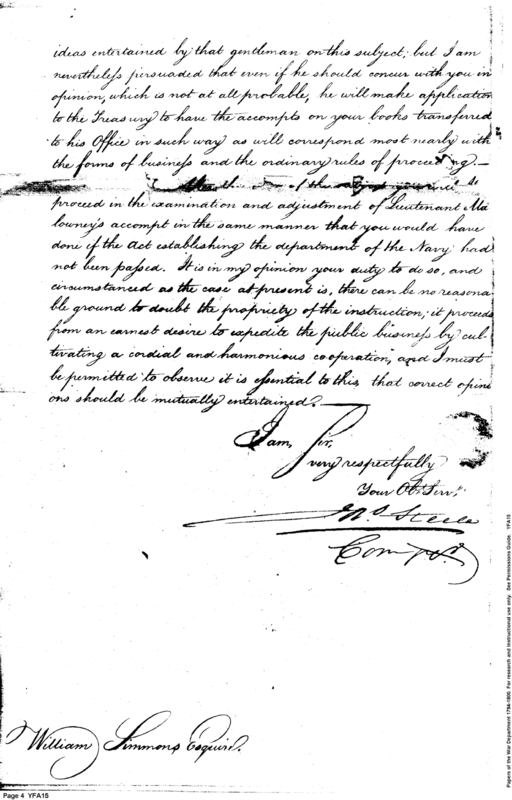 ideas entertained by that gentleman on this subject; but I am
nevertheless persuaded that even if he should concur with you in
opinion, which is not at all probable, he will make application
to the Treasury to have the accompts on your books transferred
to his Office in such way as will correspond most nearly with
the forms of business and the ordinary rules of proceeding.—
of the to
proceed in the examination and adjustment of Lieutenant Ma
lowney's accompt in the same manner that you would have
done if the Act establishing the department of the Navy had
not been passed. It is in my opinion your duty to do so, and
circumstanced as the case at present is, there can be no reasona
ble ground to doubt the propriety of the instruction; it proceeds
from an earnest desire to expedite the public business by cul
tivating a cordial and harmonious cooperation, and I must
be permitted to observe it is essential to this, that correct opini
ons should be mutually entertained.—
I am, Sir,
very respectfully
Your Obt. Servt.
Jno. Steele
Comptr.
William Simmons Esquire.
Page 4 YFA15
Papers of the War Department 1784-1800. For research and instructional use only. See Permissions Guide. YFA15